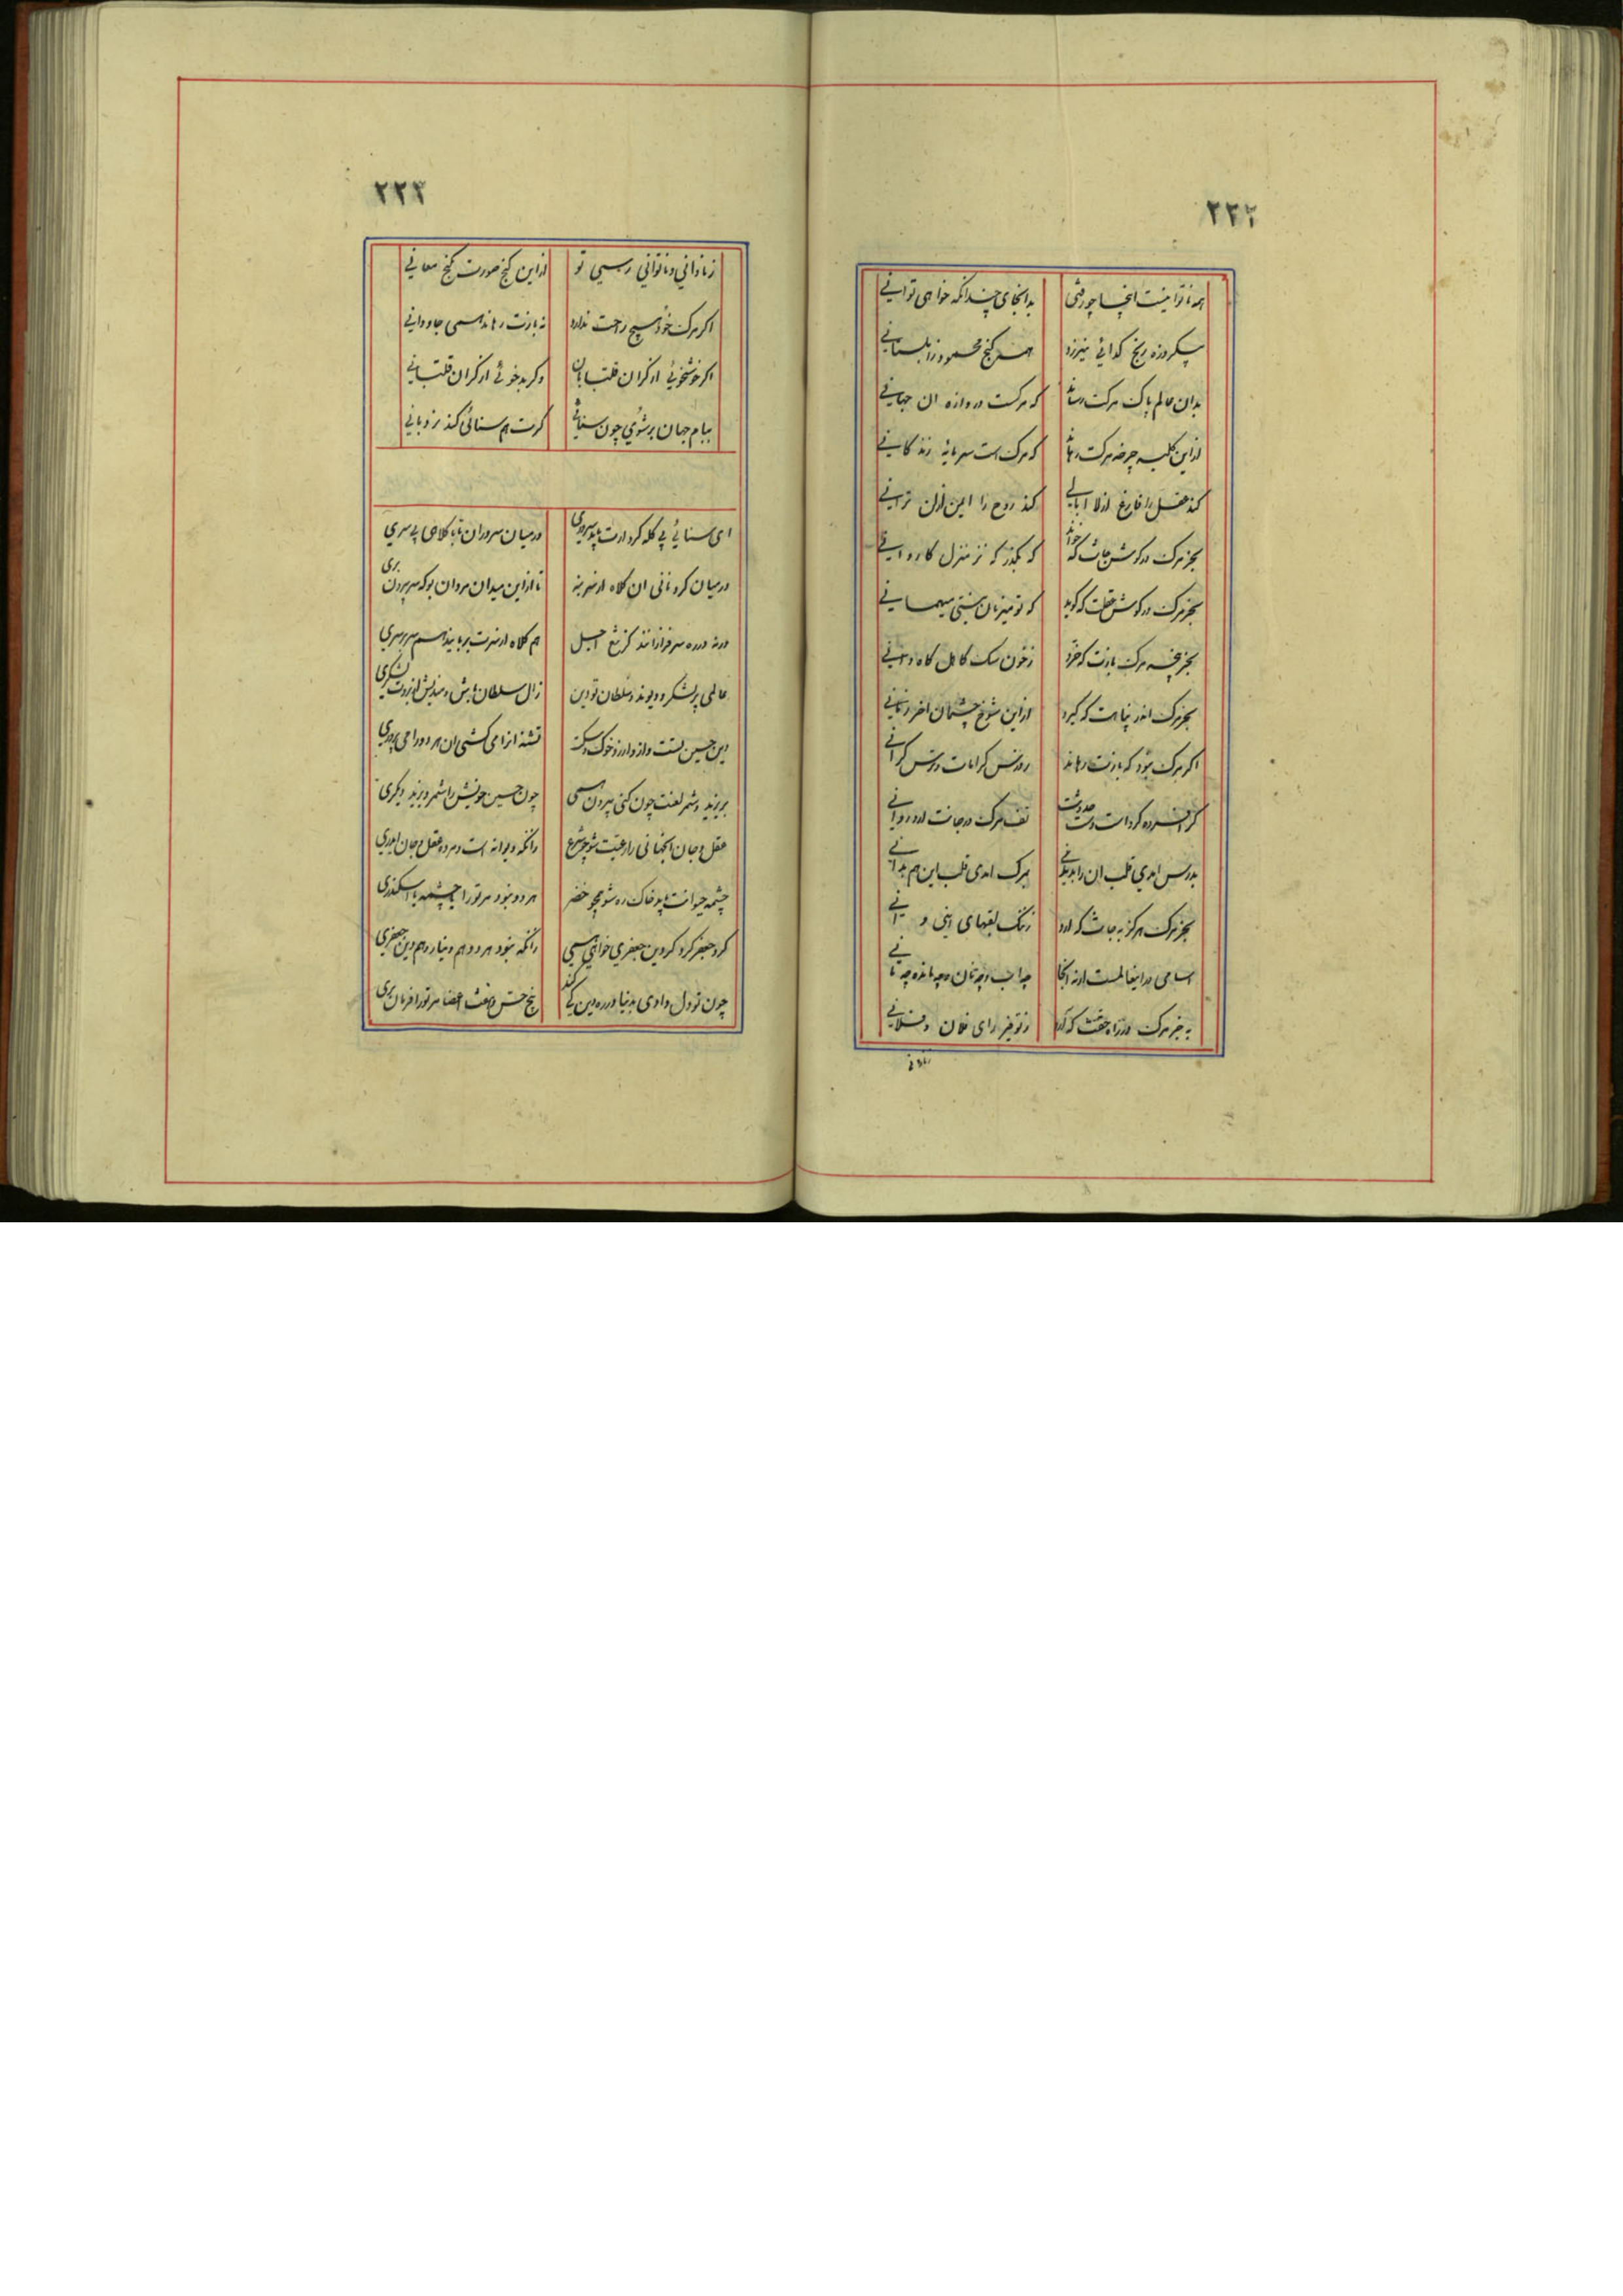 ۲۲۲
همه ناتوانیست اینجا چو رفتی بدانجای چندانکه خواهی توانی
بیکروزه رنج کدائی نیرزد همه کنج محمود زابلستانی
بدان عالم پاک مرکت رساند که مرکست دروازه ان جهانی
ازاین کلبه جیفه مرکت رهاند که مرک است سرمایه زندکانی
کند عقل را فارغ از لا ابالی کند روح را ایمن از لن ترانی
بجز مرک در کوش جانت که خواند که بکذر که نز منزل کاروانی
بجز مرک در کوش عقلت که کوید که تو میزبان نیستی میهمانی
بجز بچه مرک بازت که خرد زخون سک کاهل کاهدانی
بجز مرک اندر پناهت که کیرد ازاین شوخ چشمان اخر زمانی
اکر مرک نبود که بازت رهاند ز درس کرانان و ترس کرانی
کر افسرده کرد است درست حدوثت تف مرک در جانت ارد روانی
بدرس امدی قلب این را بدیدی بمرک امدی قلب این هم بدانی
بجز مرک هرکز به جانت که ارد زننک لقبهای اینی و انی
اسامی دراینعالمست ارنه انجا چه اب و چه نان و چه مانده چه مانی
به جز مرک در راه حقت که ارد زتوفیر رای فلان و فلانی
زنادانی
۲۲۳
زنادانی و ناتوانی رسیی تو ازاین کنج صورت کنج معانی
اکر مرک خود هیچ راحت ندارد نه بازت رهاند همی جاودانی
اکر خوشخوئی از کران قلتبانان وکر بدخوئی از کران قلتبانی
ببام جهان برشوی چون سنائی کرت هم سنائی کند نردبانی
ای سنائی بی کله کرد ارت باید سروری درمیان سروران تا با کلاهی بی سری
درمیان کردنانی ان کلاه از سر بنه تا ازاین میدان مردان بوکه سر بیرون بری
ورنه درره سرفرازانند کز تیغ اجل هم کلاه از سرت بربایند هم سر برسری
عالمی پر لشکر دیوند و سلطان تو دین زال سلطان باش و مندیش از بروت لشکری
دین حسین تست واز و ارزو خوک و سکت تشنه انرا می کشی ان هر دو را می پروری
بر یزید و شمر لعنت چون کنی بیرون همی چون حسین خویش را شمر و یزید دیکری
عقل و جان انجهانی را رعیت شو چو شرع زانکه دیوانه است و مرده عقل و جان ایدری
چشمه حیوانت باید خاک ره شو همچو خضر هر دو نبود مر تورا یا چشمه یا اسکندری
کرد جعفر کرد کر دین جعفری خواهی همی زانکه نبود هر دو هم دینار و هم دین جعفری
چون تو دل دادی بدنیا درره دین کی کند پنج حس و هفت اعضا مر تورا فرمان بری